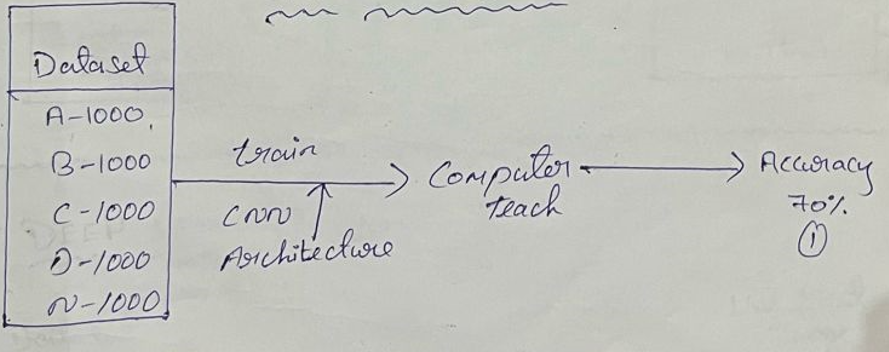 Dataset
A-1000,
B-1000
C-1000
D-1000
N-1000
train
CNN
Architecture
Computer
Teach
Accuracy
70%.
1